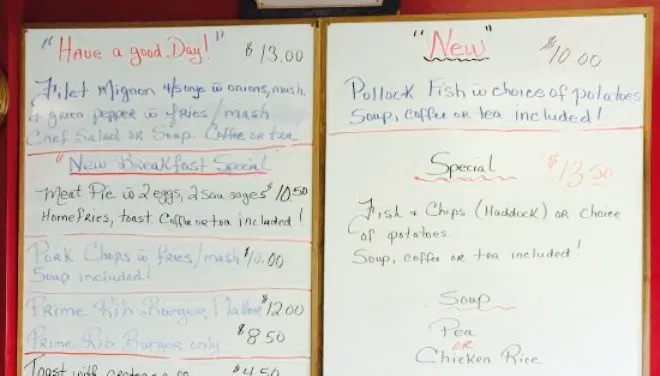 "Have a good Day!" $13.00
Filet Mignon w onions, mush.
& green pepper w fries / mash
Chef Salad or Soup. Coffee or tea
"New Breakfast Special
Meat Pie w 2 eggs, 2 sausages $10.50
Homefries, toast Coffee or tea included!
Pork Chops w fries/mash $10.00
Soup included!
Prime Rib Burger, $12.00
Prime Rib Burger only $8.50
Toast with $4.50
"New" $10.00
Pollock Fish w choice of potatoes
Soup, coffee or tea included!
Special $13.50
Fish & Chips (Haddock) or choice
of potatoes.
Soup, coffee or tea included!
Soup
Pea
or
Chicken Rice